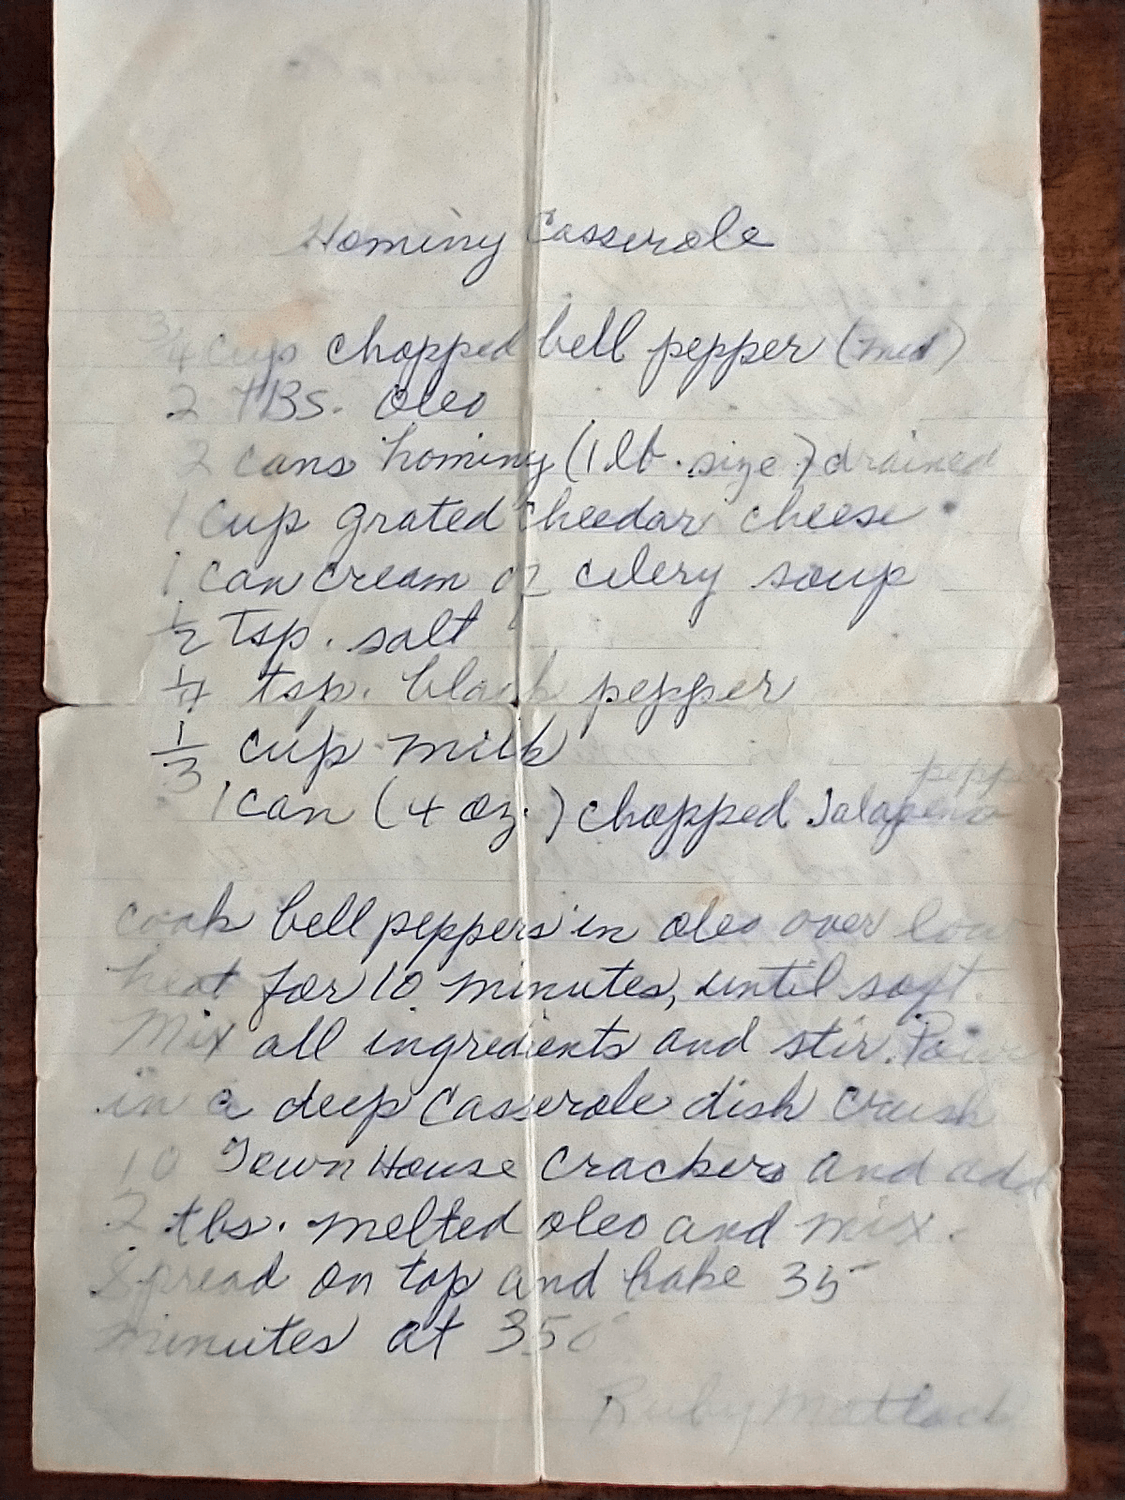 Hominy Casserole
3/4 cup chopped bell pepper (med)
2 TBS. oleo
2 cans hominy (1 lb. size) drained
1 cup grated cheedar cheese
1 can cream of celery soup
1/2 tsp. salt
1/4 tsp. black pepper
1/3 cup milk
pepper
1 can (4 oz.) chopped Jalapeno
cook bell peppers in oleo over low
heat for 10 minutes, until soft.
Mix all ingredients and stir. Pour
in a deep casserole dish crush
10 Town House crackers and add
2 tbs. melted oleo and mix.
Spread on top and bake 35
minutes at 350°
Ruby Matlock